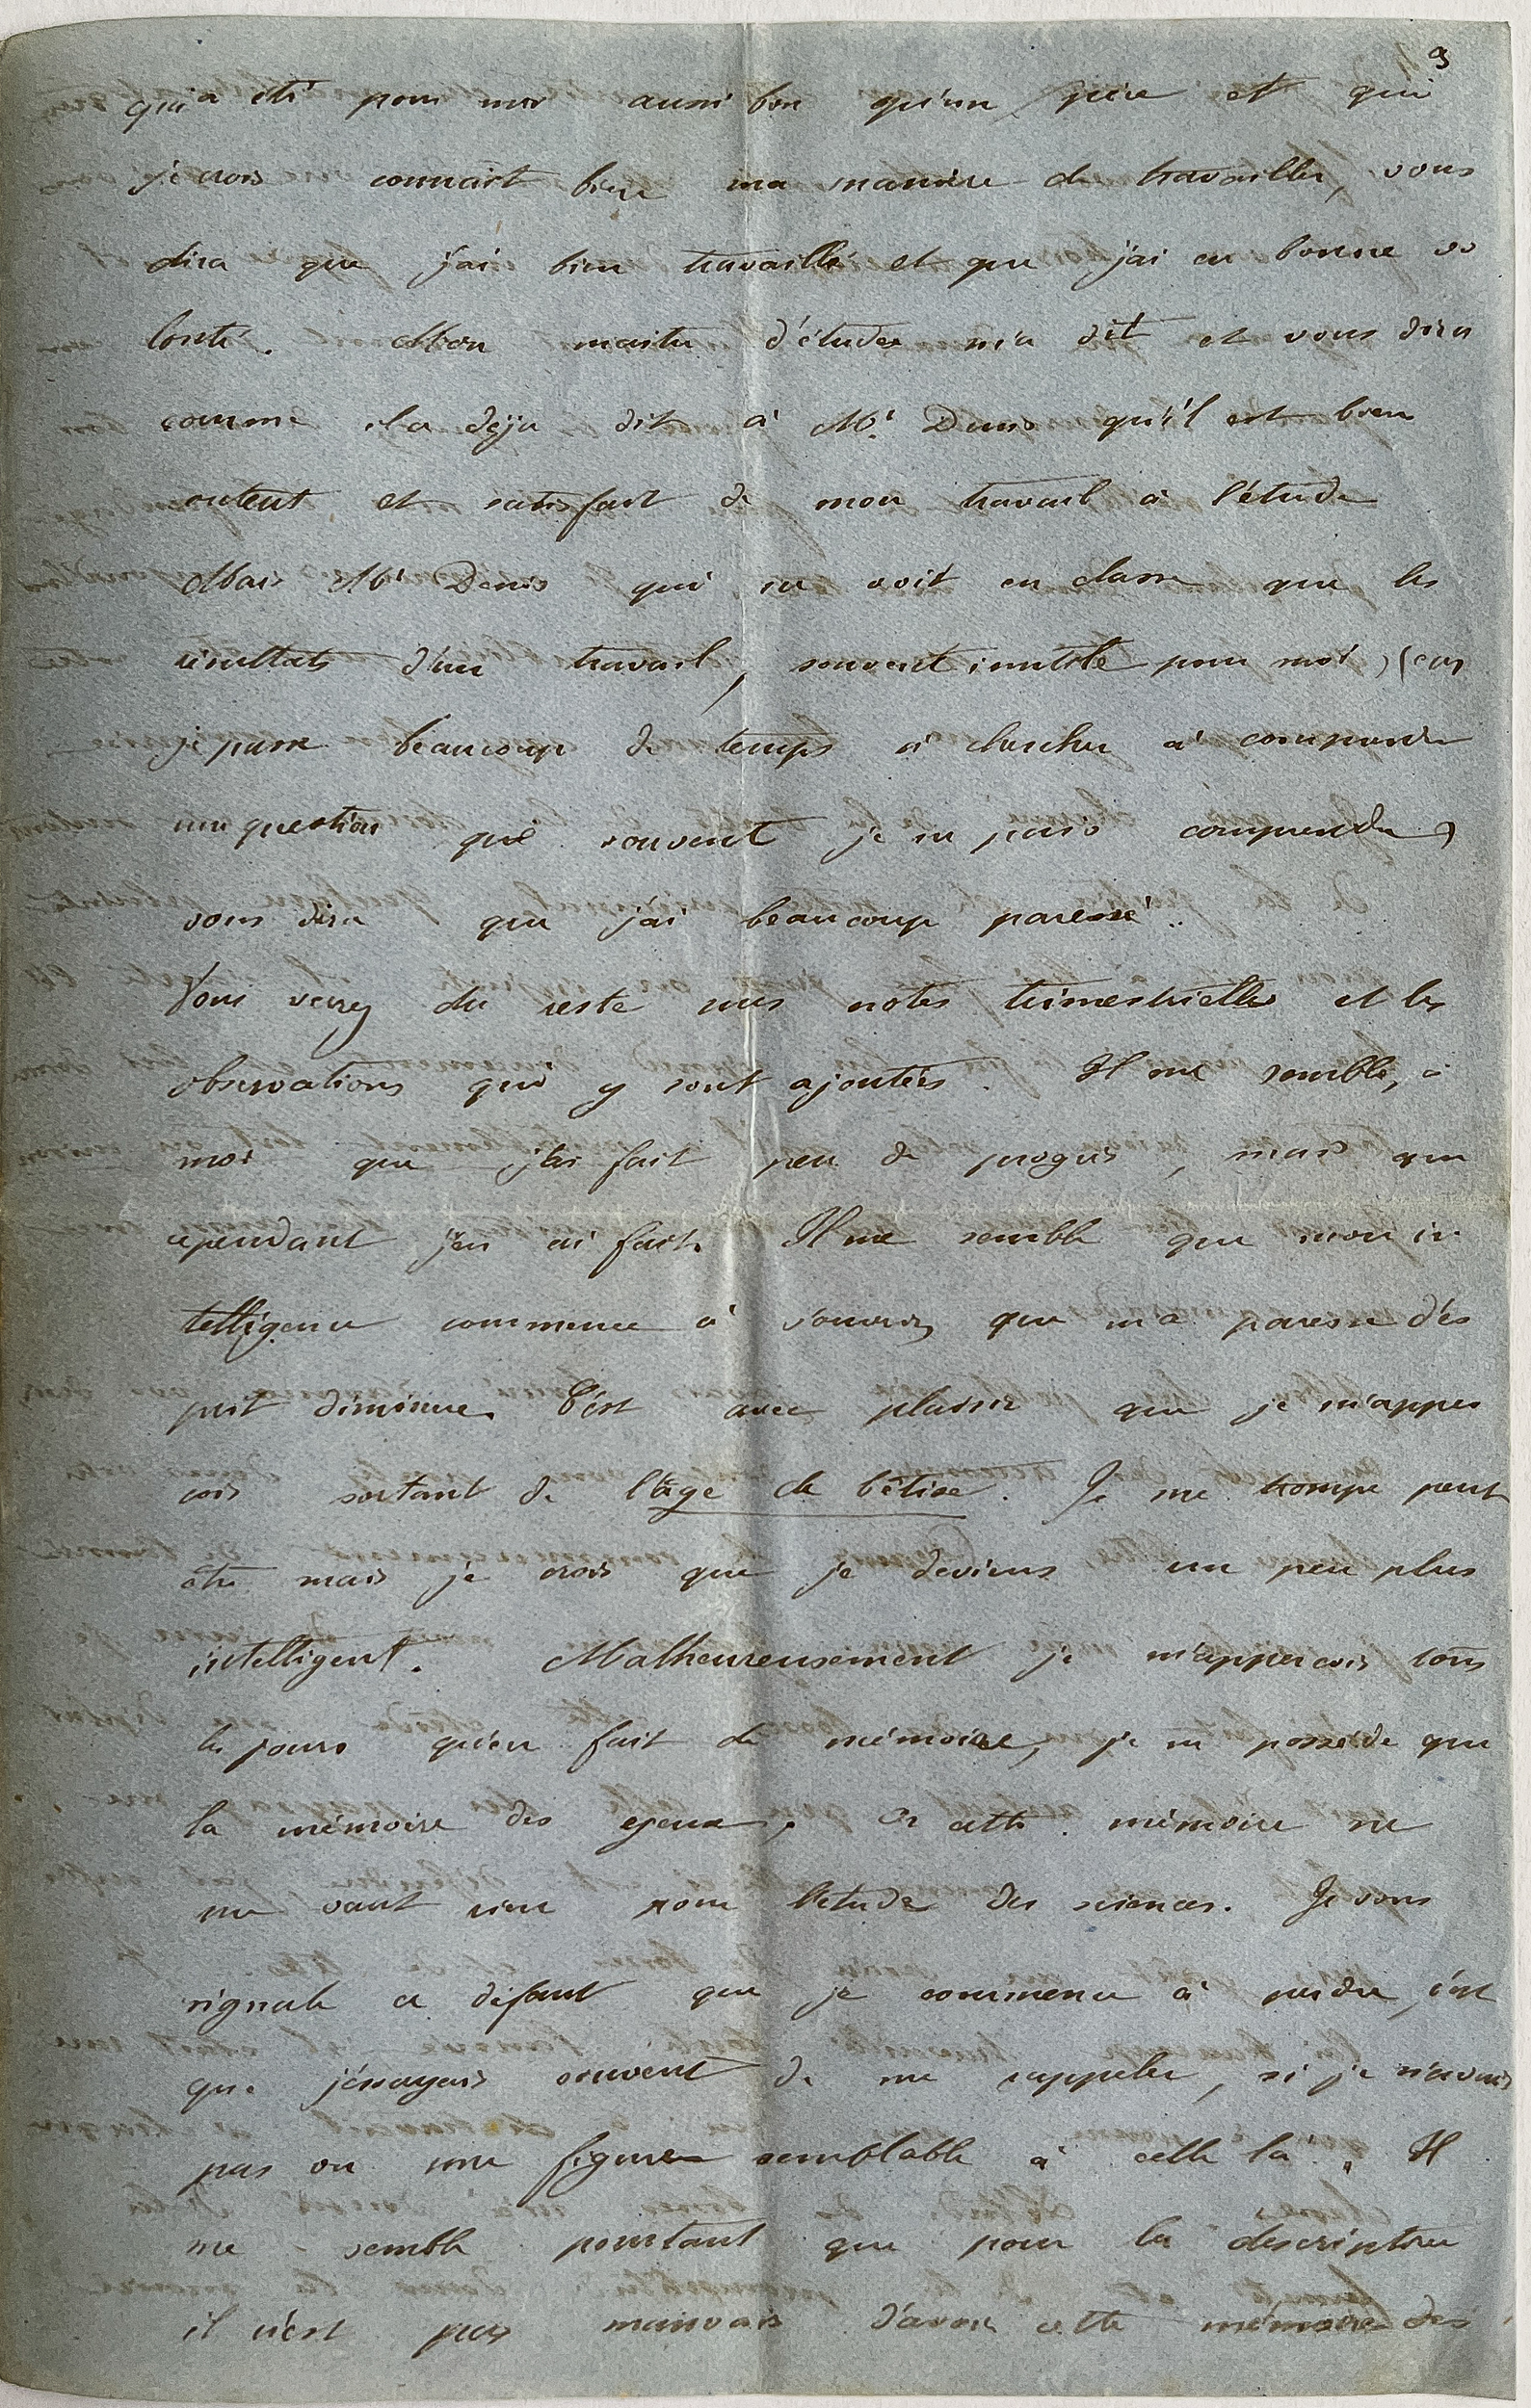 9
qui a été pour moi aussi bon qu'un père et qui
je crois connait bien ma manière de travailler, vous
dira que j'ai bien travaillé et que j'ai eu bonne vo
lonté. Mon maitre d'études m'a dit et vous dira
comme il a déja dit à Mr Denis qu'il est bien
content et satisfait de mon travail à l'étude
Mais Mr Denis qui ne voit en classe que les
résultats d'un travail, souvent inutile pour moi, (car
je passe beaucoup de temps à chercher à comprendre
une question que souvent je ne puis comprendre)
vous dira que j'ai beaucoup paressé.
Vous verrez du reste mes notes trimestrielles et les
observations qui y sont ajoutées. Il me semble, à
moi que j'ai fait peu de progrès, mais que
cependant j'en ai fait. Il me semble que mon in
telligence commence à s'ouvrir que ma paresse d'es
prit diminue. C'est avec plaisir que je m'apper
cois sortant de l'âge de bêtise. Je me trompe peut
être mais je crois que je deviens un peu plus
intelligent. Malheureusement je m'appercois tous
les jours qu'en fait de mémoire, je ne possède que
la mémoire des yeux. Or cette mémoire ne
me vaut rien pour l'étude des sciences. Je vous
signale ce défaut que je commence à perdre, c'est
que j'essayais souvent de me rappeler, si je n'avais
pas vu une figure semblable à celle là. Il
me semble pourtant que pour la descriptive
il n'est pas mauvais d'avoir cette mémoire des